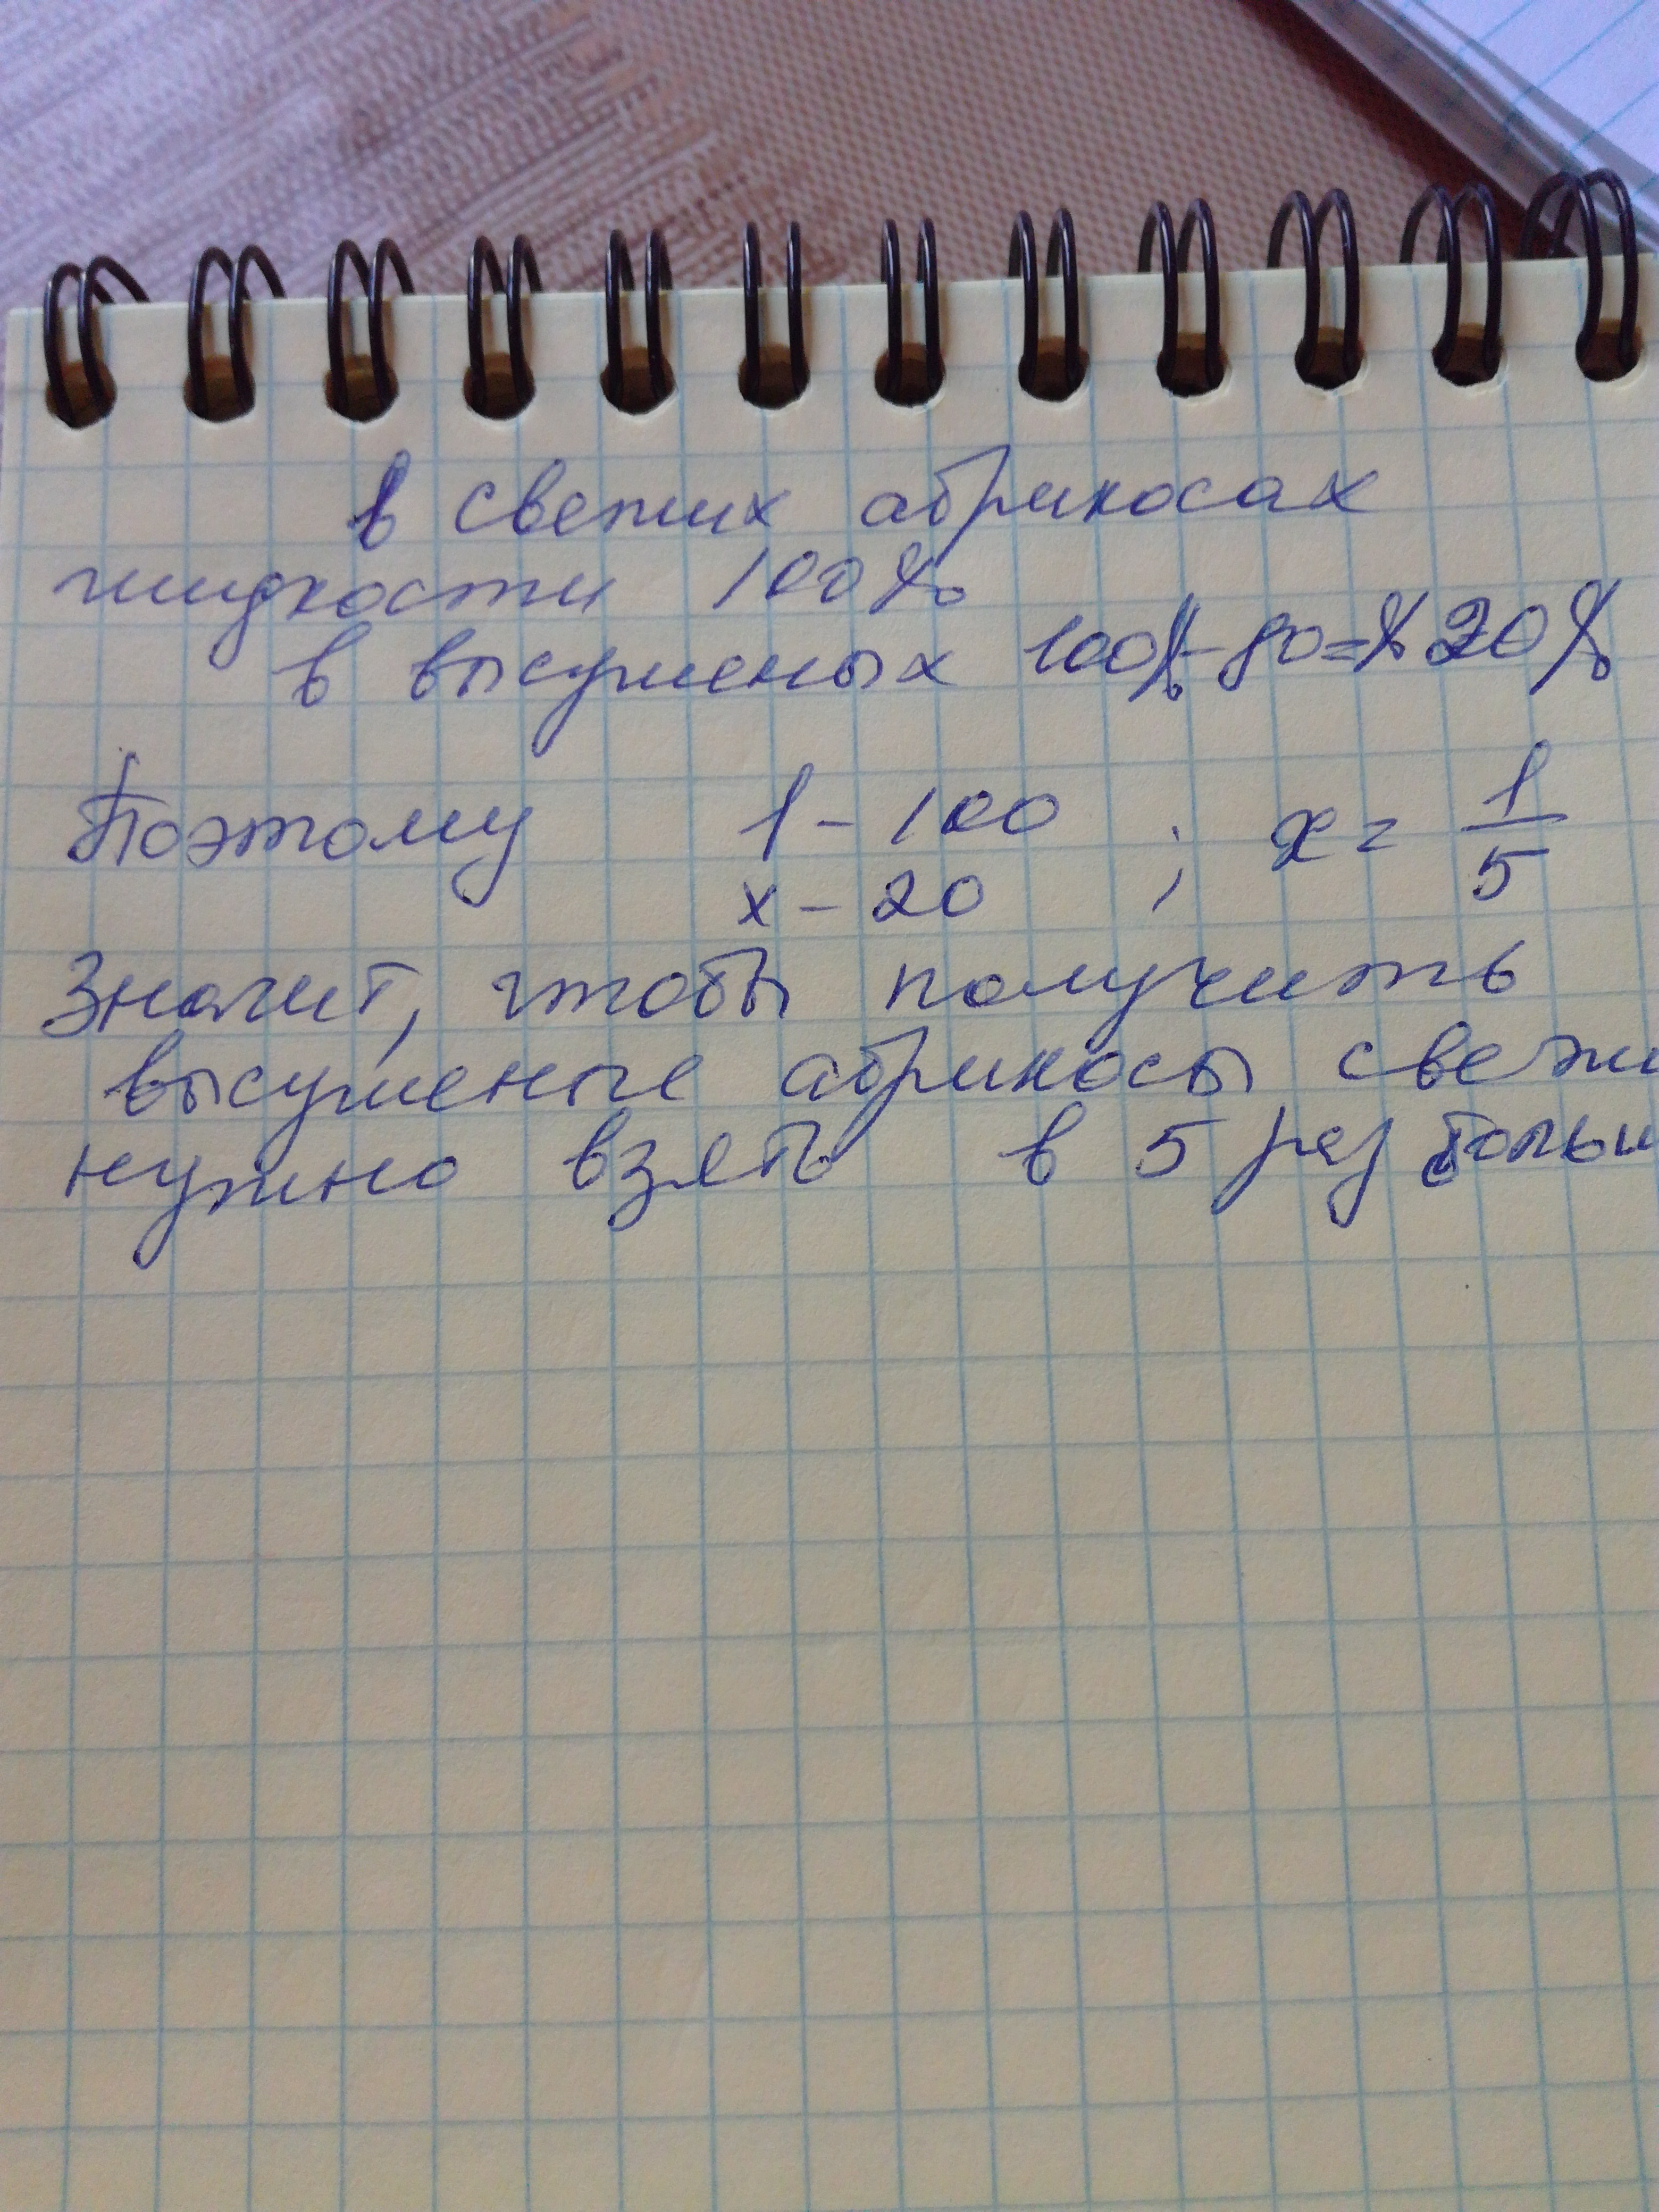 в свежих абрикосах
жидкости 100%
в высушеных 100% - 80 = % 20%
Поэтому 1 - 100 ; x = 1/5
x - 20
Значит, чтобы получить
высушеные абрикосы свежи
нужно взять в 5 раз больш